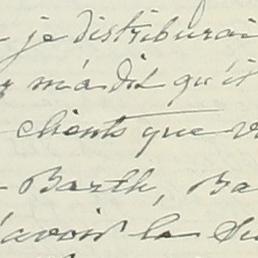 je distribuerai
m'a dit qu'il
clients que v
Barth, Ba
avoir la Su